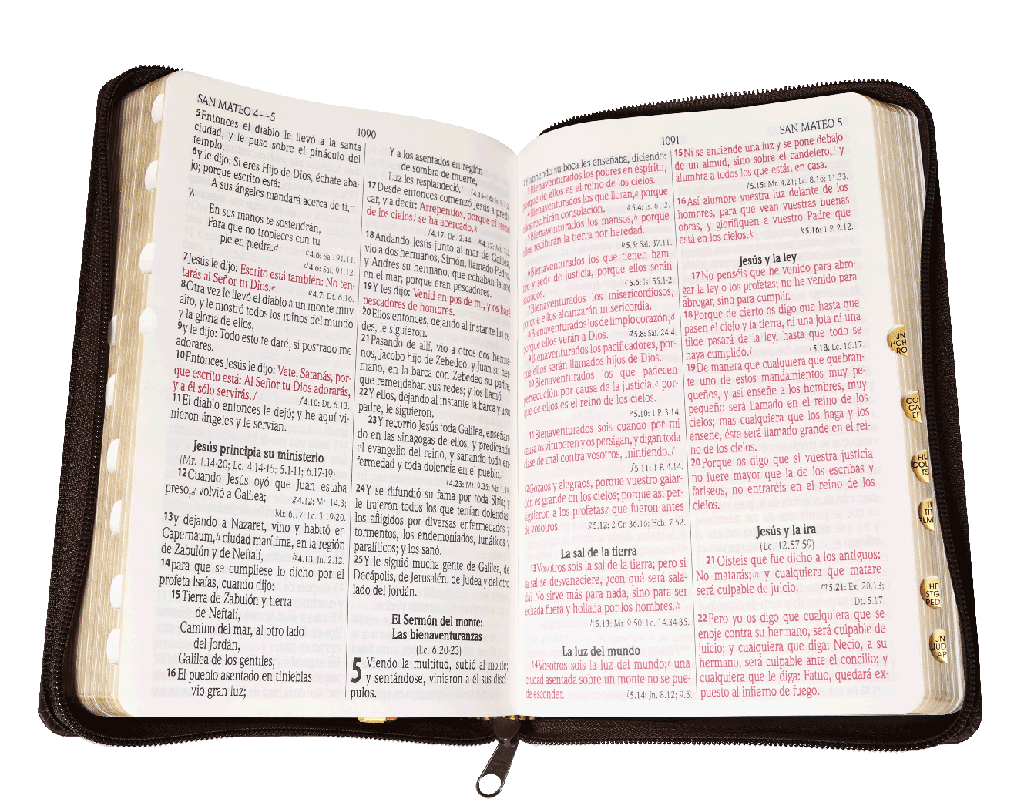 SAN MATEO 4—5
1090
5Entonces el diablo le llevó a la santa
ciudad, y le puso sobre el pináculo del
templo,
6y le dijo: Si eres Hijo de Dios, échate aba-
jo; porque escrito está:
A sus ángeles mandará acerca de ti,
y,
En sus manos te sostendrán,
Para que no tropieces con tu
pie en piedra.
7Jesús le dijo: Escrito está también: No ten-
tarás al Señor tu Dios.
8Otra vez le llevó el diablo a un monte muy
alto, y le mostró todos los reinos del mundo
y la gloria de ellos,
9y le dijo: Todo esto te daré, si postrado me
adorares.
10Entonces Jesús le dijo: Vete, Satanás, por-
que escrito está: Al Señor tu Dios adorarás,
y a él sólo servirás.
11El diablo entonces le dejó; y he aquí vi-
nieron ángeles y le servían.
Jesús principia su ministerio
(Mr. 1.14-20; Lc. 4.14-15; 5.1-11; 6.17-19)
12Cuando Jesús oyó que Juan estaba
preso, volvió a Galilea;
13y dejando a Nazaret, vino y habitó en
Capernaum, ciudad marítima, en la región
de Zabulón y de Neftalí,
14para que se cumpliese lo dicho por el
profeta Isaías, cuando dijo:
15Tierra de Zabulón y tierra
de Neftalí,
Camino del mar, al otro lado
del Jordán,
Galilea de los gentiles;
16El pueblo asentado en tinieblas
vio gran luz;
Y a los asentados en región
de sombra de muerte,
Luz les resplandeció.
17Desde entonces comenzó Jesús a predi-
car, y a decir: Arrepentíos, porque el reino
de los cielos se ha acercado.
18Andando Jesús junto al mar de Galilea,
vio a dos hermanos, Simón, llamado Pedro,
y Andrés su hermano, que echaban la red
en el mar; porque eran pescadores.
19Y les dijo: Venid en pos de mí, y os haré
pescadores de hombres.
20Ellos entonces, dejando al instante las re-
des, le siguieron.
21Pasando de allí, vio a otros dos herma-
nos, Jacobo hijo de Zebedeo, y Juan su her-
mano, en la barca con Zebedeo su padre,
que remendaban sus redes; y los llamó.
22Y ellos, dejando al instante la barca y a su
padre, le siguieron.
23Y recorrió Jesús toda Galilea, enseñan-
do en las sinagogas de ellos, y predicando
el evangelio del reino, y sanando toda en-
fermedad y toda dolencia en el pueblo.
24Y se difundió su fama por toda Siria; y
le trajeron todos los que tenían dolencias,
los afligidos por diversas enfermedades y
tormentos, los endemoniados, lunáticos y
paralíticos; y los sanó.
25Y le siguió mucha gente de Galilea, de
Decápolis, de Jerusalén, de Judea y del otro
lado del Jordán.
El Sermón del monte:
Las bienaventuranzas
(Lc. 6.20-23)
5 Viendo la multitud, subió al monte;
y sentándose, vinieron a él sus discí-
pulos.
1091
SAN MATEO 5
abriendo su boca les enseñaba, diciendo:
Bienaventurados los pobres en espíritu,
porque de ellos es el reino de los cielos.
Bienaventurados los que lloran, porque
ellos recibirán consolación.
Bienaventurados los mansos, porque
ellos recibirán la tierra por heredad.
Bienaventurados los que tienen ham-
bre y sed de justicia, porque ellos serán
saciados.
Bienaventurados los misericordiosos,
porque ellos alcanzarán misericordia.
Bienaventurados los de limpio corazón,
porque ellos verán a Dios.
Bienaventurados los pacificadores, por-
que ellos serán llamados hijos de Dios.
10Bienaventurados los que padecen
persecución por causa de la justicia, por-
que de ellos es el reino de los cielos.
11Bienaventurados sois cuando por mi
causa os vituperen y os persigan, y digan toda
clase de mal contra vosotros, mintiendo.
12Gozaos y alegraos, porque vuestro galar-
dón es grande en los cielos; porque así per-
siguieron a los profetas que fueron antes
de vosotros.
La sal de la tierra
13Vosotros sois la sal de la tierra; pero si
la sal se desvaneciere, ¿con qué será sala-
da? No sirve más para nada, sino para ser
echada fuera y hollada por los hombres.
La luz del mundo
14Vosotros sois la luz del mundo; una
ciudad asentada sobre un monte no se pue-
de esconder.
15Ni se enciende una luz y se pone debajo
de un almud, sino sobre el candelero, y
alumbra a todos los que están en casa.
16Así alumbre vuestra luz delante de los
hombres, para que vean vuestras buenas
obras, y glorifiquen a vuestro Padre que
está en los cielos.
Jesús y la ley
17No penséis que he venido para abro-
gar la ley o los profetas; no he venido para
abrogar, sino para cumplir.
18Porque de cierto os digo que hasta que
pasen el cielo y la tierra, ni una jota ni una
tilde pasará de la ley, hasta que todo se
haya cumplido.
19De manera que cualquiera que quebran-
te uno de estos mandamientos muy pe-
queños, y así enseñe a los hombres, muy
pequeño será llamado en el reino de los
cielos; mas cualquiera que los haga y los
enseñe, éste será llamado grande en el rei-
no de los cielos.
20Porque os digo que si vuestra justicia
no fuere mayor que la de los escribas y
fariseos, no entraréis en el reino de los
cielos.
Jesús y la ira
(Lc. 12.57-59)
21Oísteis que fue dicho a los antiguos:
No matarás; y cualquiera que matare
será culpable de juicio.
22Pero yo os digo que cualquiera que se
enoje contra su hermano, será culpable de
juicio; y cualquiera que diga: Necio, a su
hermano, será culpable ante el concilio; y
cualquiera que le diga: Fatuo, quedará ex-
puesto al infierno de fuego.